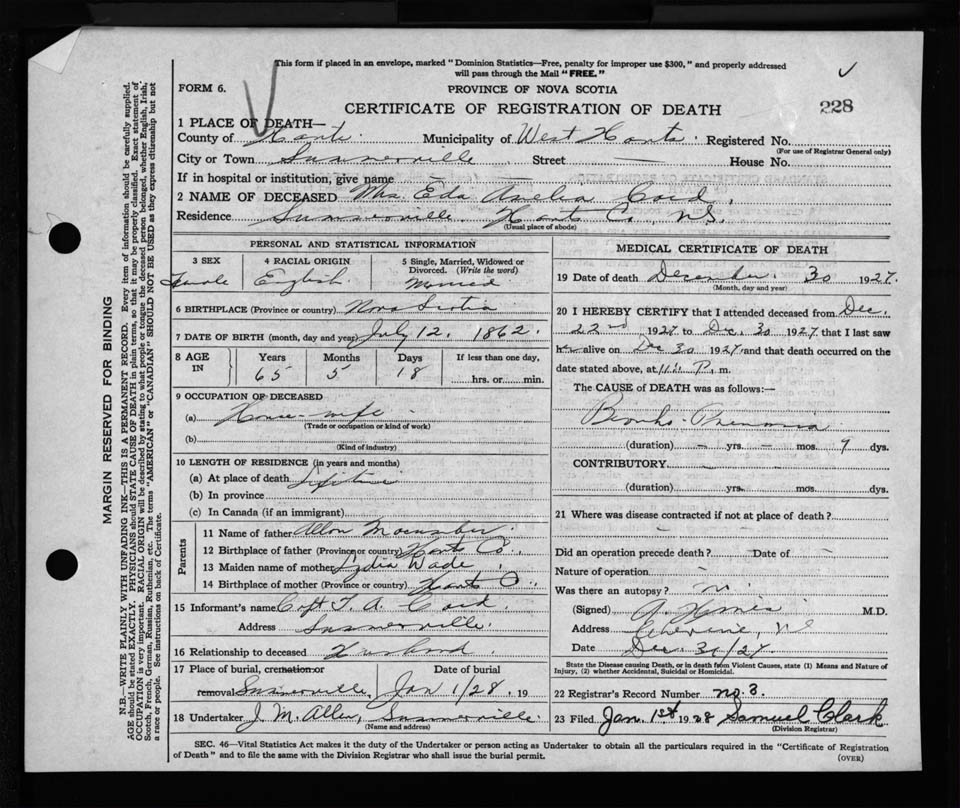 This form if placed in an envelope, marked "Dominion Statistics—Free, penalty for improper use $300," and properly addressed
will pass through the Mail "FREE."
FORM 6. PROVINCE OF NOVA SCOTIA
CERTIFICATE OF REGISTRATION OF DEATH 228
1 PLACE OF DEATH—
County of Hants. Municipality of West Hants Registered No.
(For use of Registrar General only)
City or Town Summerville Street — House No.
If in hospital or institution, give name —
2 NAME OF DECEASED Mrs. Eda Amelia
Residence Summerville, Hants Co., N.S.
(Usual place of abode)
PERSONAL AND STATISTICAL INFORMATION
3 SEX 4 RACIAL ORIGIN 5 Single, Married, Widowed or Divorced. (Write the word)
Female English. Married
6 BIRTHPLACE (Province or country) Nova Scotia
7 DATE OF BIRTH (month, day and year) July 12, 1862.
8 AGE IN Years Months Days If less than one day,
65 5 18 hrs. or min.
9 OCCUPATION OF DECEASED
(a) House-wife
(Trade or occupation or kind of work)
(b)
(Kind of industry)
10 LENGTH OF RESIDENCE (in years and months)
(a) At place of death Lifetime
(b) In province
(c) In Canada (if an immigrant)
Parents
11 Name of father
12 Birthplace of father (Province or country) Hants Co.
13 Maiden name of mother Lydia Wade
14 Birthplace of mother (Province or country) Hants Co.
15 Informant's name Capt. T. A.
Address Summerville.
16 Relationship to deceased Husband
17 Place of burial, cremation or Date of burial
removal Summerville, Jan 1/28, 19
18 Undertaker J. M. Allen, Summerville.
(Name and address)
MEDICAL CERTIFICATE OF DEATH
19 Date of death December 30 1927.
(Month, day and year)
20 I HEREBY CERTIFY that I attended deceased from Dec.
22nd 1927 to Dec. 30 1927 that I last saw
her alive on Dec 30 1927 and that death occurred on the
date stated above, at 11 P. m.
The CAUSE of DEATH was as follows:—
Broncho-Pneumonia
(duration) — yrs. — mos. 9 dys.
CONTRIBUTORY —
(duration) yrs. mos. dys.
21 Where was disease contracted if not at place of death? —
Did an operation precede death? — Date of —
Nature of operation —
Was there an autopsy? no
(Signed) M.D.
Address N.S.
Date Dec. 31/27.
State the Disease causing Death, or in death from Violent Causes, state (1) Means and Nature of
Injury, (2) whether Accidental, Suicidal or Homicidal.
22 Registrar's Record Number no. 3.
23 Filed Jan. 1st 1928 Samuel Clark
(Division Registrar)
SEC. 46—Vital Statistics Act makes it the duty of the Undertaker or person acting as Undertaker to obtain all the particulars required in the "Certificate of Registration
of Death" and to file the same with the Division Registrar who shall issue the burial permit.
(OVER)
MARGIN RESERVED FOR BINDING
N.B.—WRITE PLAINLY WITH UNFADING INK—THIS IS A PERMANENT RECORD. Every item of information should be carefully supplied.
AGE should be stated EXACTLY. PHYSICIANS should STATE CAUSE OF DEATH in plain terms, so that it may be properly classified. Exact statement of
OCCUPATION is very important. RACIAL ORIGIN will be described by stating to what people or tongue the deceased person belonged, whether English, Irish,
Scotch, French, German, Russian, Ruthenian, etc. The terms "AMERICAN" or "CANADIAN" SHOULD NOT BE USED as they express citizenship but not
a race or people. See instructions on back of Certificate.